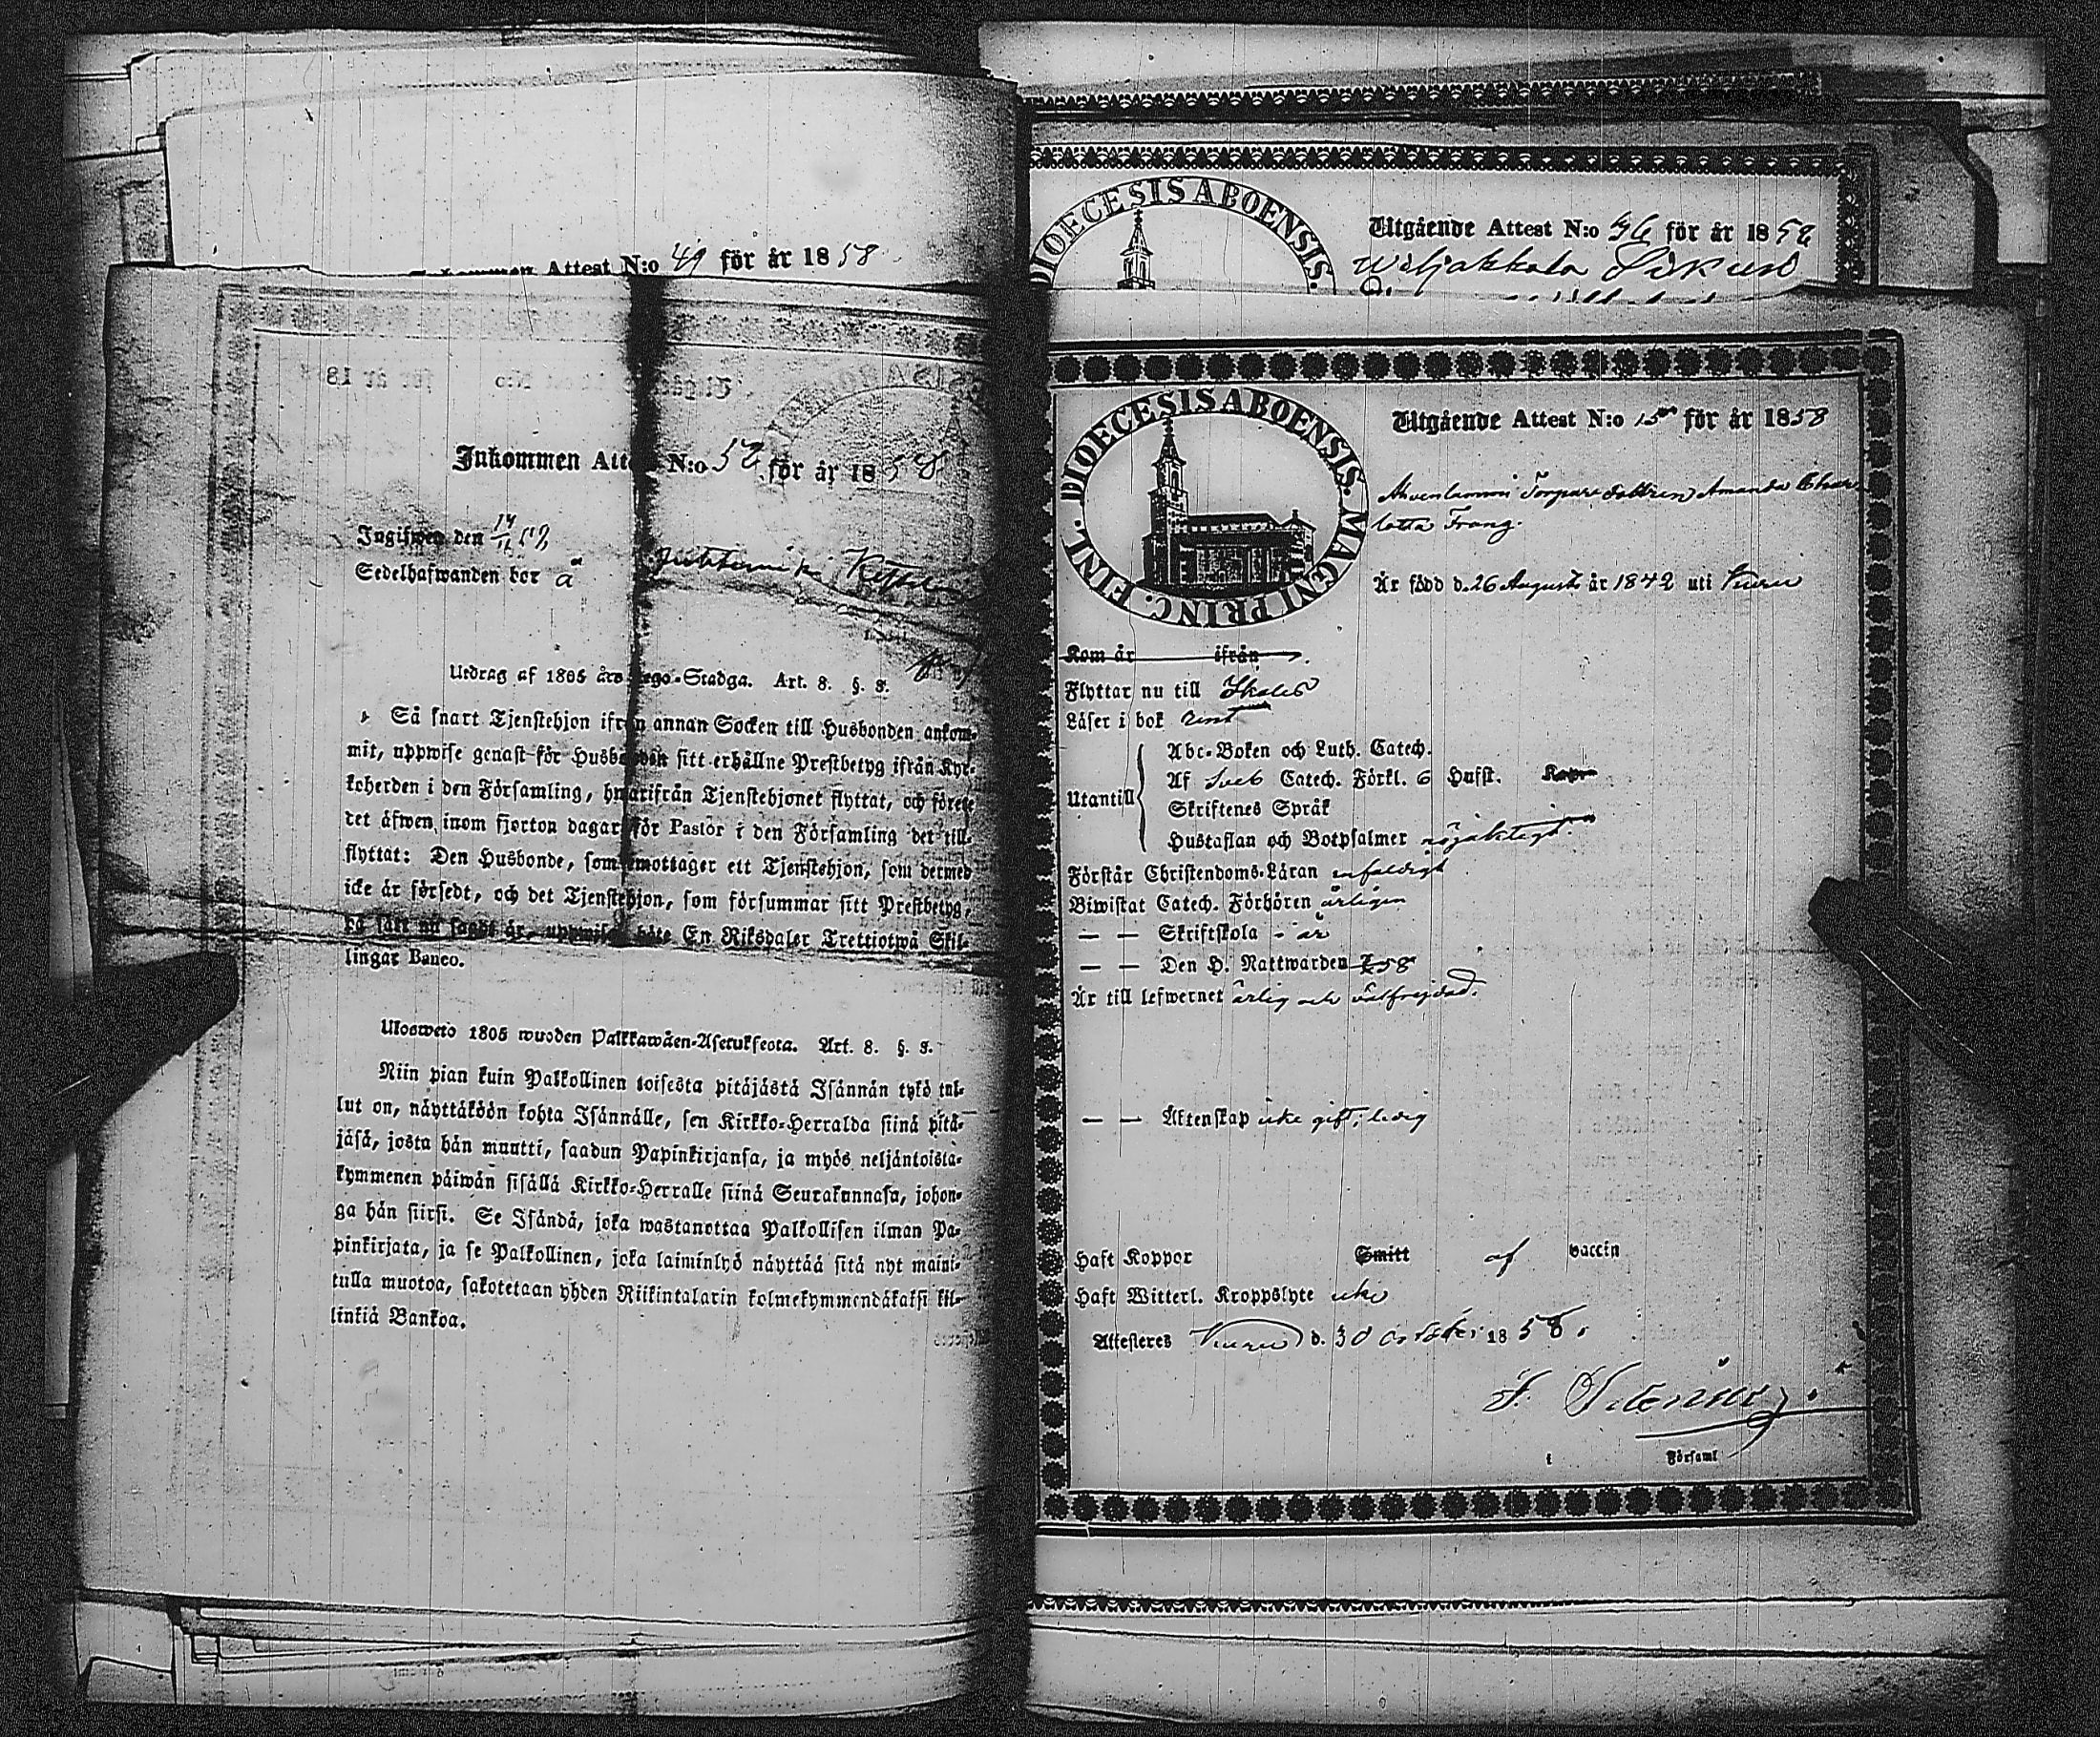 Attest N:o 49 för år 1858
Inkommen Attest N:o 52 för år 1858
Ingifwen den 14/11 58
Sedelhafwanden bor å
Utdrag af 1805 års Lego-Stadga. Art. 8. §. 8.
Så snart Tjenstehjon ifrån annan Socken till Husbonden ankom-
mit, uppwise genast för Husbonden sitt erhållne Prestbetyg ifrån Kyr-
koherden i den Församling, hwarifrån Tjenstehjonet flyttat, och förete
det äfwen inom fjorton dagar för Pastor i den Församling det till-
flyttat: Den Husbonde, som emottager ett Tjenstehjon, som dermed
icke är försedt, och det Tjenstehjon, som försummar sitt Prestbetyg,
på sätt nu sagdt är, uppwisa, böte En Riksdaler Trettiotwå Skil-
lingar Banco.
Ulosweto 1805 wuoden Palkkawäen-Asetuksesta. Art. 8. §. 8.
Niin pian kuin Palkollinen toisesta pitäjästä Isännän tykö tul-
lut on, näyttäköön kohta Isännälle, sen Kirkko-Herralda siinä pitä-
jäsä, josta hän muutti, saadun Papinkirjansa, ja myös neljäntoista-
kymmenen päiwän sisällä Kirkko-Herralle siinä Seurakunnasa, johon-
ga hän siirsi. Se Isändä, joka wastanottaa Palkollisen ilman Pa-
pinkirjata, ja se Palkollinen, joka laiminlyö näyttää sitä nyt maini-
tulla muotoa, sakotetaan yhden Riikintalarin kolmekymmendäkaksi kil-
linkiä Bankoa.
DIOECESIS ABOENSIS.
Utgående Attest N:o 36 för år 1858
Wiljakkala
DIOECESIS ABOENSIS. MAGNI PRINC. FINL.
Utgående Attest N:o 15 för år 1858
Ahvenlammi Torpare dottren Amanda Char-
lotta Frang.
Är född d. 26 Augusti år 1842 uti Kuru
Kom år ifrån
Flyttar nu till Ikalis
Läser i bok rent
Utantill
Abc-Boken och Luth. Catech.
Af Sveb Catech. Förkl. 6 Hufst.
Skriftenes Språk
Hustaflan och Botpsalmer nöjaktigt
Förstår Christendoms-Läran enfaldigt
Biwistat Catech. Förhören årligen
— — Skriftskola - är
— — Den H. Nattwarden 58
Är till lefwernet ärlig och välfrejdad.
— — Äktenskap icke gift; ledig
Haft Koppor Smitt af vaccin
Haft Witterl. Kroppslyte icke
Attesteres Kuru d. 30 october 1858.
i Församl